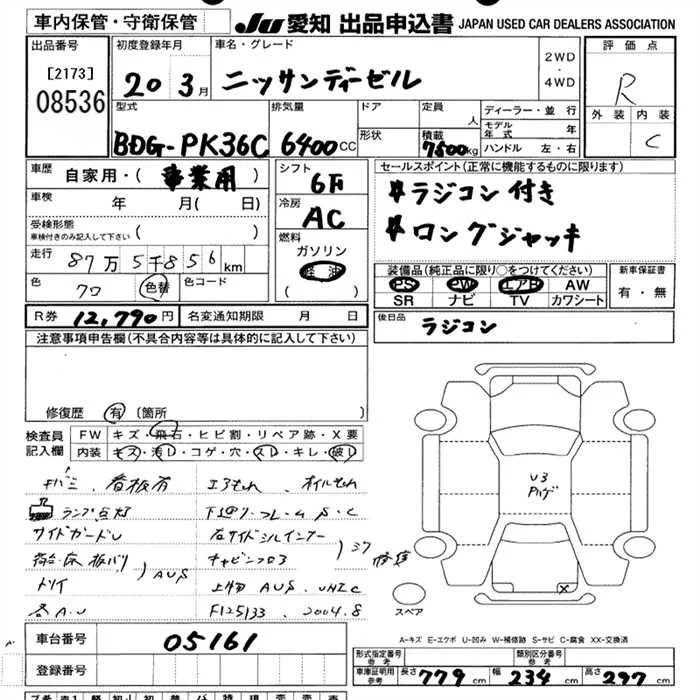 車内保管・守衛保管 JU 愛知 出品申込書 JAPAN USED CAR DEALERS ASSOCIATION
出品番号 初度登録年月 車名・グレード 2WD・4WD 評価点
[2173] 08536 20 3月 ニッサンディーゼル R
外装 内装 C
型式 排気量 ドア 定員 人 ディーラー・並行
BDG-PK36C 6400CC 形状 積載 7500kg モデル年式 年
ハンドル 左・右
車歴 自家用・(事業用) シフト 6F セールスポイント(正常に機能するものに限ります)
車検 年 月(日) 冷房 AC ラジコン付き
受検形態 車検付きのみ記入して下さい ( ) ロングジャッキ
走行 87万5千856km 燃料 ガソリン 軽油 ( )
装備品(純品に限り○をつけてください) 新車保証書
PS PW エアB AW 有・無
SR ナビ TV カワシート
色 クワ 色替 色コード
R券 12,790円 名変通知期限 月 日 後日品 ラジコン
注意事項申告欄(不具合内容等は具体的に記入して下さい)
修復歴 有 (箇所
検査員記入欄 FW キズ・飛石・ヒビ割・リペア跡・X要
内装 キズ・汚レ・コゲ・穴・スレ・キレ・破レ
看板有 エアもれ、オイルもれ
ランプ点灯 下廻り・フレーム S・C
サイドガードU 右サイドシルインナー
荷台・床板バリ
AUS
上物 AUS、UNIC
各A・U F125133、2004.8
U3
スペア
A-キズ E-エクボ U-凹み W-補修跡 S-サビ C-腐食 XX-交換済
車台番号 05161
登録番号
形式指定番号 参考 類別区分番号 参考
車庫証明用 参考 長さ 779cm 幅 234cm 高さ 297cm